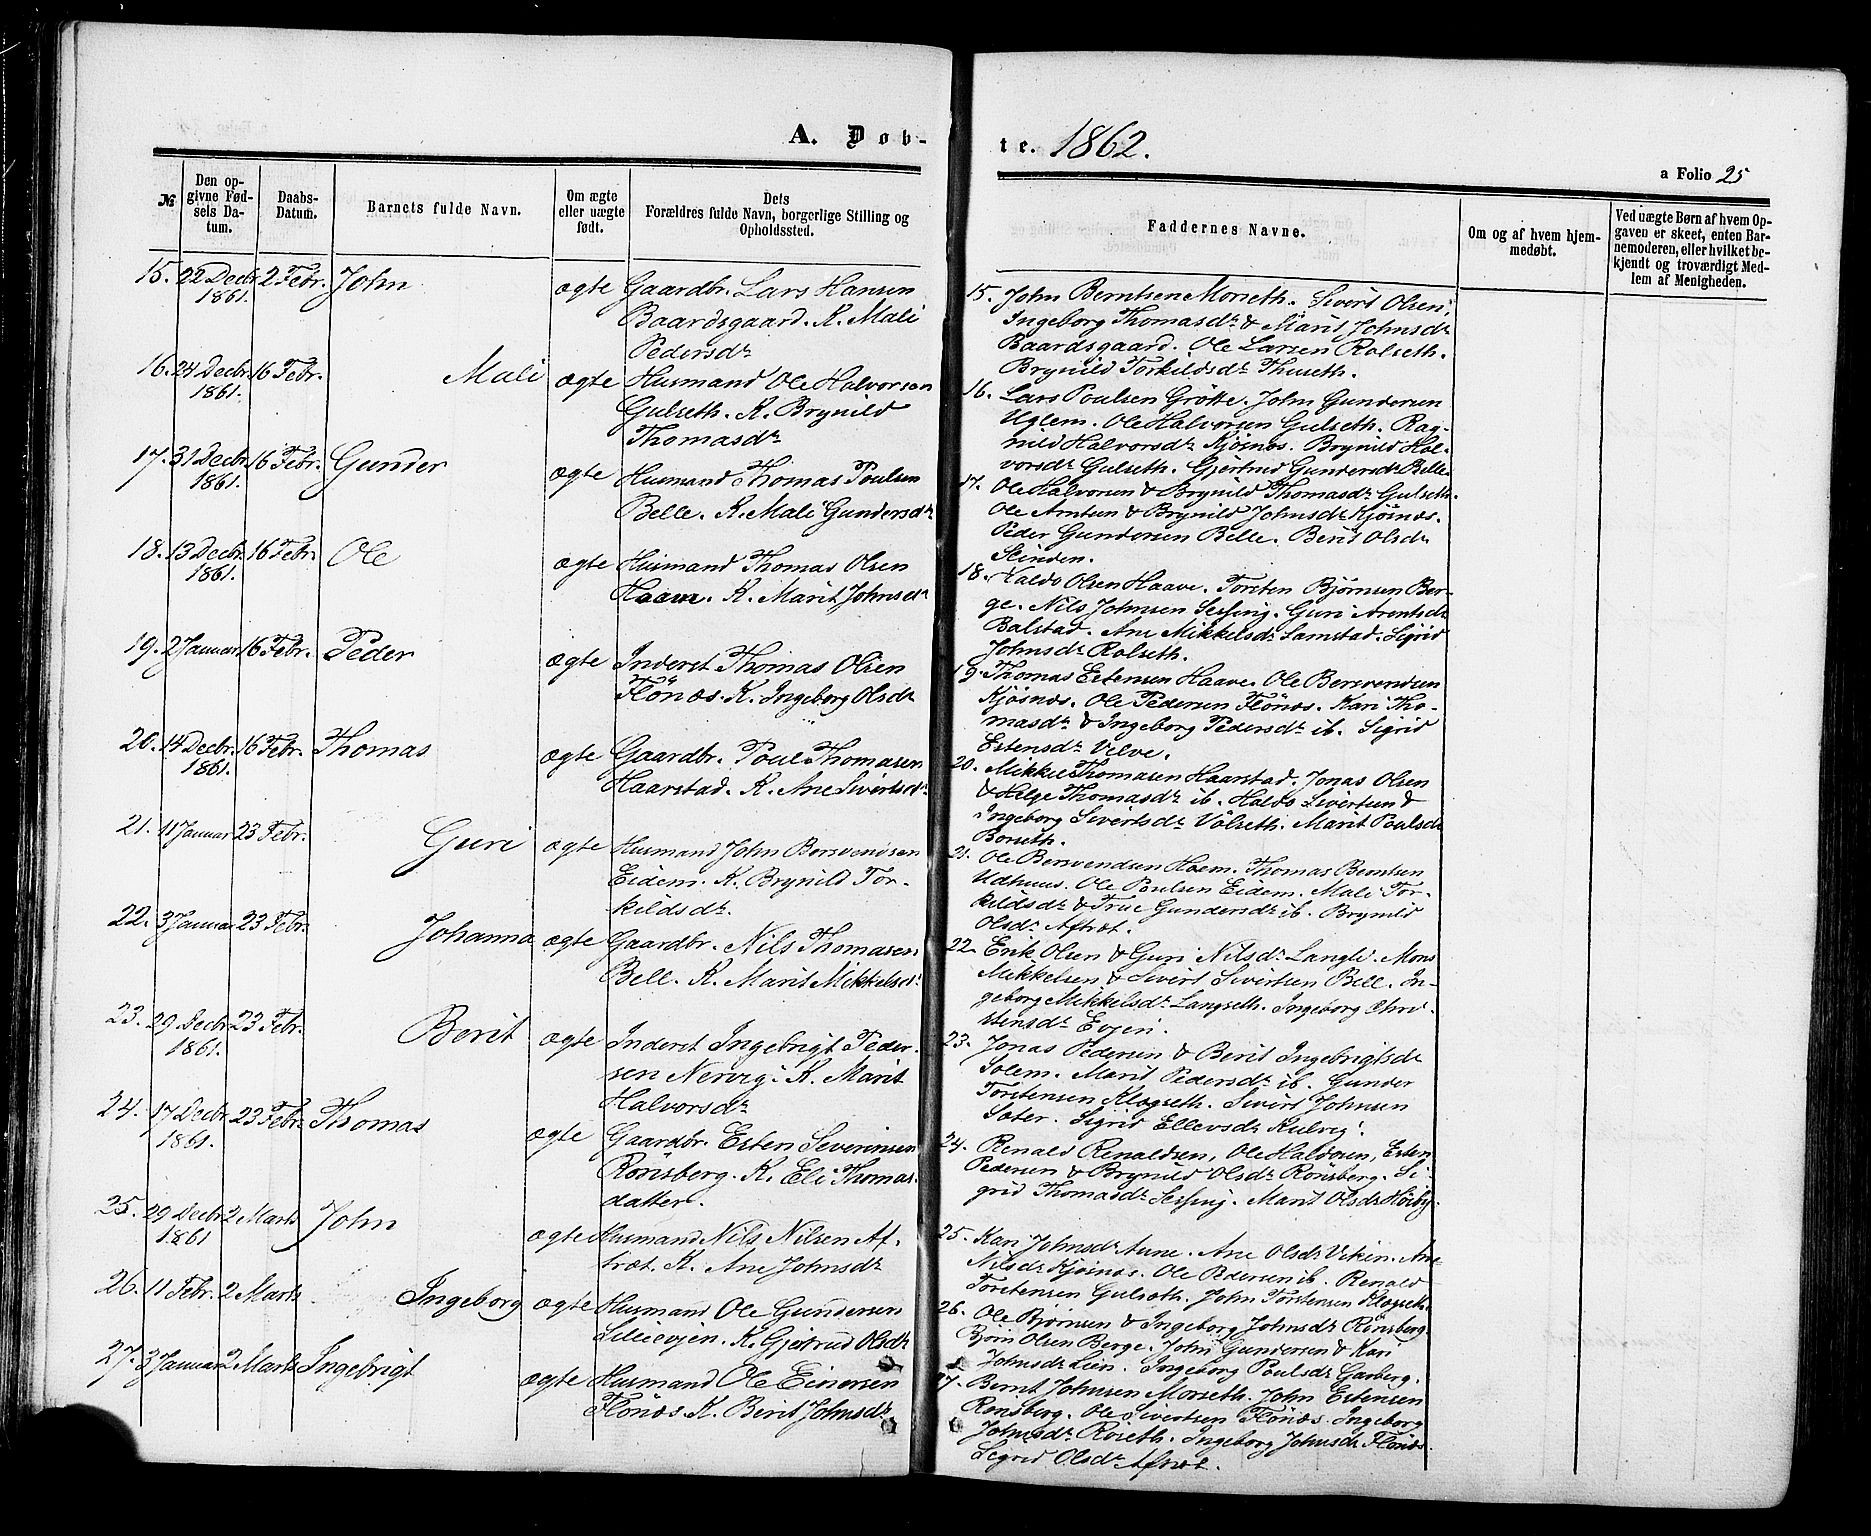 A. Døb-
№
Den op-
givne Fød-
sels Da-
tum.
Daabs-
Datum.
Barnets fulde Navn.
Om ægte
eller uægte
født.
Dets
Forældres fulde Navn, borgerlige Stilling og
Opholdssted.
15. 22 Decbr 2 Febr. John ægte Gaardbr. Lars Hansen
1861. Baardsgaard. K. Mali
Pedersdr
16. 24 Decbr. 16 Febr. Mali ægte Husmand Ole Halvorsen
1861. Gulseth. K. Brynild
Thomasdr
17. 31 Decbr. 16 Febr. Gunder ægte Husmand Thomas Poulsen
1861. Belle. K. Mali Gundersdr
18. 13 Decbr. 16 Febr. Ole ægte Husmand Thomas Olsen
1861. K. Marit Johnsdr
19. 2 Januar 16 Febr. Peder ægte Inderst Thomas Olsen
Flönæs. K. Ingeborg Olsdr
20. 14 Decbr. 16 Febr. Thomas ægte Gaardbr. Poul Thomasen
1861. Haarstad. K. Ane Sivertsdr
21. 11 Januar 23 Febr. Guri ægte Husmand John Bersvendsen
Eidem. K. Brynild Tor-
kildsdr.
22. 3 Januar 23 Febr. Johanna ægte Gaardbr. Nils Thomasen
Bell. K. Marit Mikkelsdr
23. 29 Decbr. 23 Febr. Berit ægte Inderst Ingebrigt Peder-
1861. sen Nervig. K. Marit
Halvorsdr
24. 17 Decbr. 23 Febr. Thomas ægte Gaardbr. Esten Severinsen
1861. Rönsberg. K. Eli Thomas-
datter.
25. 29 Decbr. 2 Marts John ægte Husmand Nils Nilsen Af-
1861 træt. K. Ane Johnsdr
26. 11 Febr. 2 Marts Ingeborg ægte Husmand Ole Gundersen
Lilleevjen. K. Gjertrud Olsdr
27. 3 Januar 2 Marts Ingebrigt ægte Husmand Ole Einersen
Flönæs K. Berit Johnsdr
te. 1862.
a Folio 25
Faddernes Navne.
Om og af hvem hjem-
medøbt.
Ved uægte Børn af hvem Op-
gaven er skeet, enten Bar-
nemoderen, eller hvilket be-
kjendt og troværdigt Med-
lem af Menigheden.
15. John Berntsen Morseth. Sivert Olsen,
Ingeborg Thomasdr & Marit Johnsdr
Baardsgaard. Ole Larsen Rolseth.
Brynild Torkildsdr Thuseth.
16. Lars Poulsen Grötte. John Gundersen
Uglem. Ole Halvorsen Gulseth. Rag-
nild Halvorsdr Kjösnæs. Brynild Hal-
vorsdr Gulseth. Gjertrud Gundersdr Belle.
17. Ole Halvorsen & Brynild Thomasdr Gulseth.
Ole Arntsen & Brynild Johnsdr Kjösnæs.
Peder Gundersen Belle. Berit Olsdr
Slinden.
18. Haldo Olsen Haave. Torsten Bjørnsen Ber-
ge. Nils Johnsen Sessing. Guri Arentsdr
Balstad. Ane Mikkelsdr Samstad. Sigrid
Johnsdr Rolseth.
19. Thomas Estensen Haave. Ole Bersvendsen
Kjösnæs. Ole Pedersen Flönæs. Kari Tho-
masdr & Ingeborg Pedersdr ib. Sigrid
Estensdr Vilve.
20. Mikkel Thomasen Haarstad. Jonas Olsen
& Helge Thomasdr ib. Haldo Sivertsen &
Ingeborg Sivertsdr Völseth. Marit Poulsdr
Borseth.
21. Ole Bersvendsen Hoem. Thomas Berntsen
Udhuus. Ole Poulsen Eidem. Mali Tor-
kildsdr & True Gundersdr ib. Brynild
Olsdr Aftræt.
22. Erik Olsen & Guri Nilsdr Langli. Mons
Mikkelsen & Sivert Sivertsen Bell. In-
geborg Mikkelsdr Langseth. Ingeborg Chri-
stensdr Evjen.
23. Jonas Pedersen & Berit Ingebrigtsdr
Solem. Marit Pedersdr ib. Gunder
Torstensen Klogseth. Sivert Johnsen
Sater. Sigrid Ellevsdr Kulvig.
24. Renald Renaldsen, Ole Haldosen, Esten
Pedersen & Brynild Olsdr Rönsberg. Si-
grid Thomasdr Sessing. Marit Olsdr Höiby.
25. Kari Johnsdr Aune. Ane Olsdr Viken. Ane
Nilsdr Kjösnæs. Ole Pedersen ib. Renald
Torstensen Gulseth. John Torstensen Klogseth.
26. Ole Bjørnsen & Ingeborg Johnsdr Rönsberg.
Bjørn Olsen Berge. John Gundersen & Kari
Johnsdr Lien. Ingeborg Poulsdr Garberg.
27. Bernt Johnsen Morseth. John Estensen
Rönsberg. Ole Sivertsen Flönæs. Ingeborg
Johnsdr Röseth. Ingeborg Johnsdr Flönæs.
Sigrid Olsdr Aftræt.